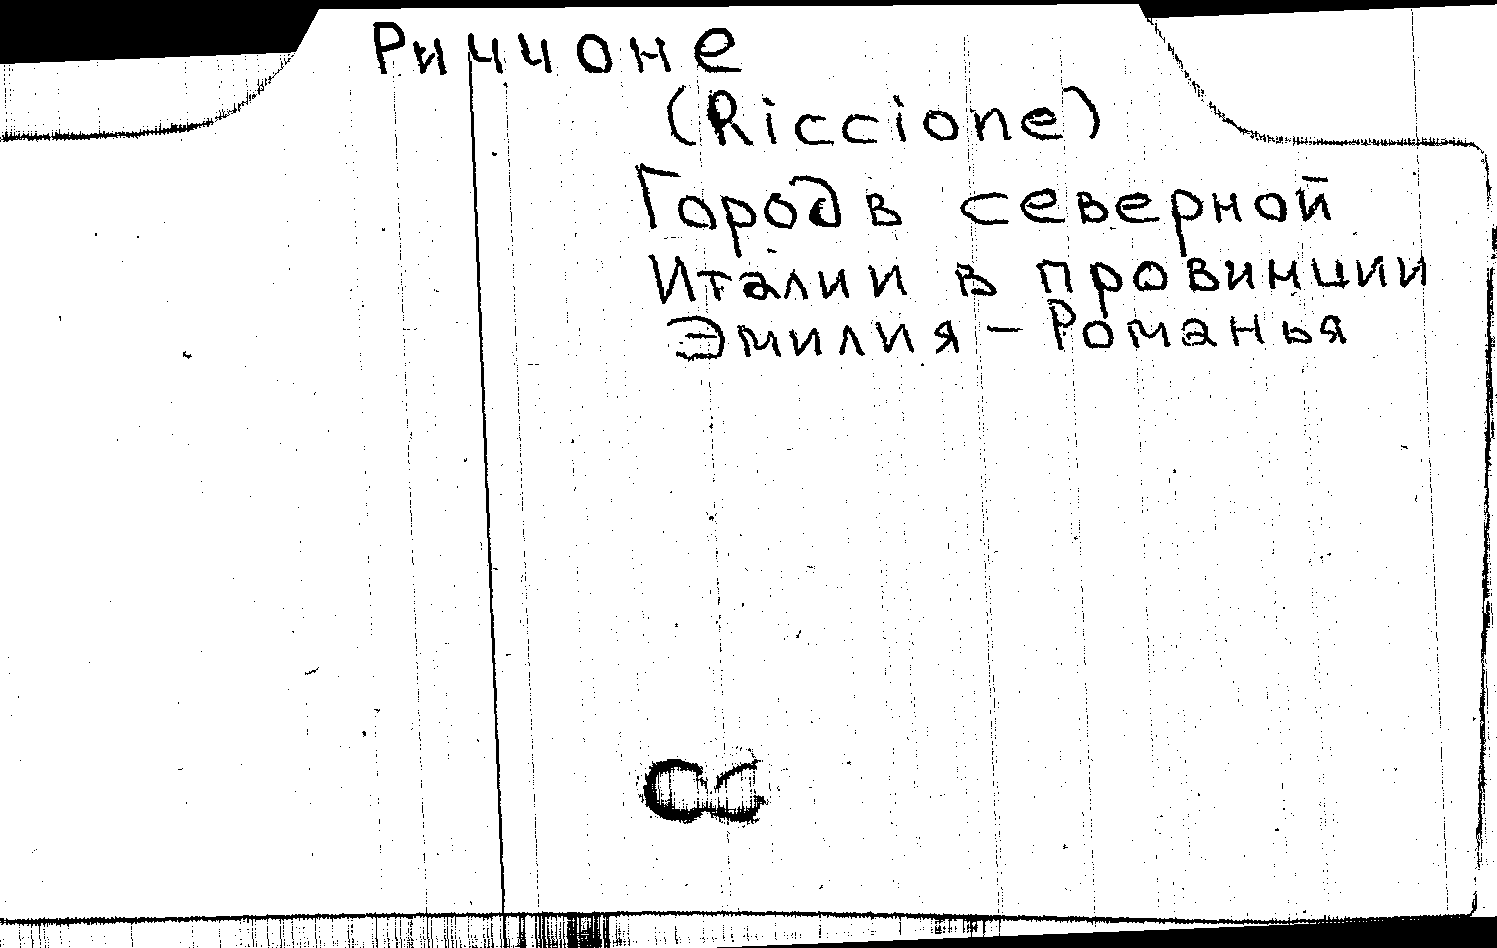 Риччоне
(Riccione)
Город в северной
Италии в провинции
Эмилия – Романья